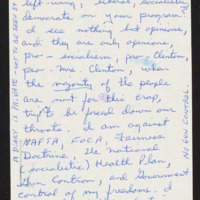 left-wing, liberal, socialistic
democrats on your program
I see nothing but opinions,
and they are only opinions,
pro-socialism, pro-Clinton,
pro-Mrs. Clinton, when
the majority of the people
are not for this crap,
try to be forced down our
throats. I am against
NAFTA, FOCA, Fairness
Doctrine, the national
(socialistic) Health Plan,
Gun Control, and Government
control of my freedoms. I
A DIARY IS PRIVATE - NOT TO BE SEEN BY
NO GUN CONTROL.